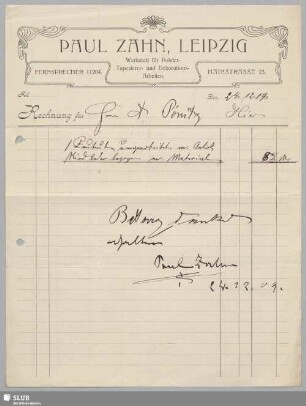 PAUL ZAHN, LEIPZIG
Werkstatt für Polster-
Tapezierer- und Dekorations-
Arbeiten.
FERNSPRECHER 11204. HAINSTRASSE 23.
Den 24. 12. 19
Rechnung für Herrn A. Pönitz Hier
1 umgearbeitet
u. Material
Betrag dankend
erhalten
Paul Zahn
24. 12. 09.
SLUB